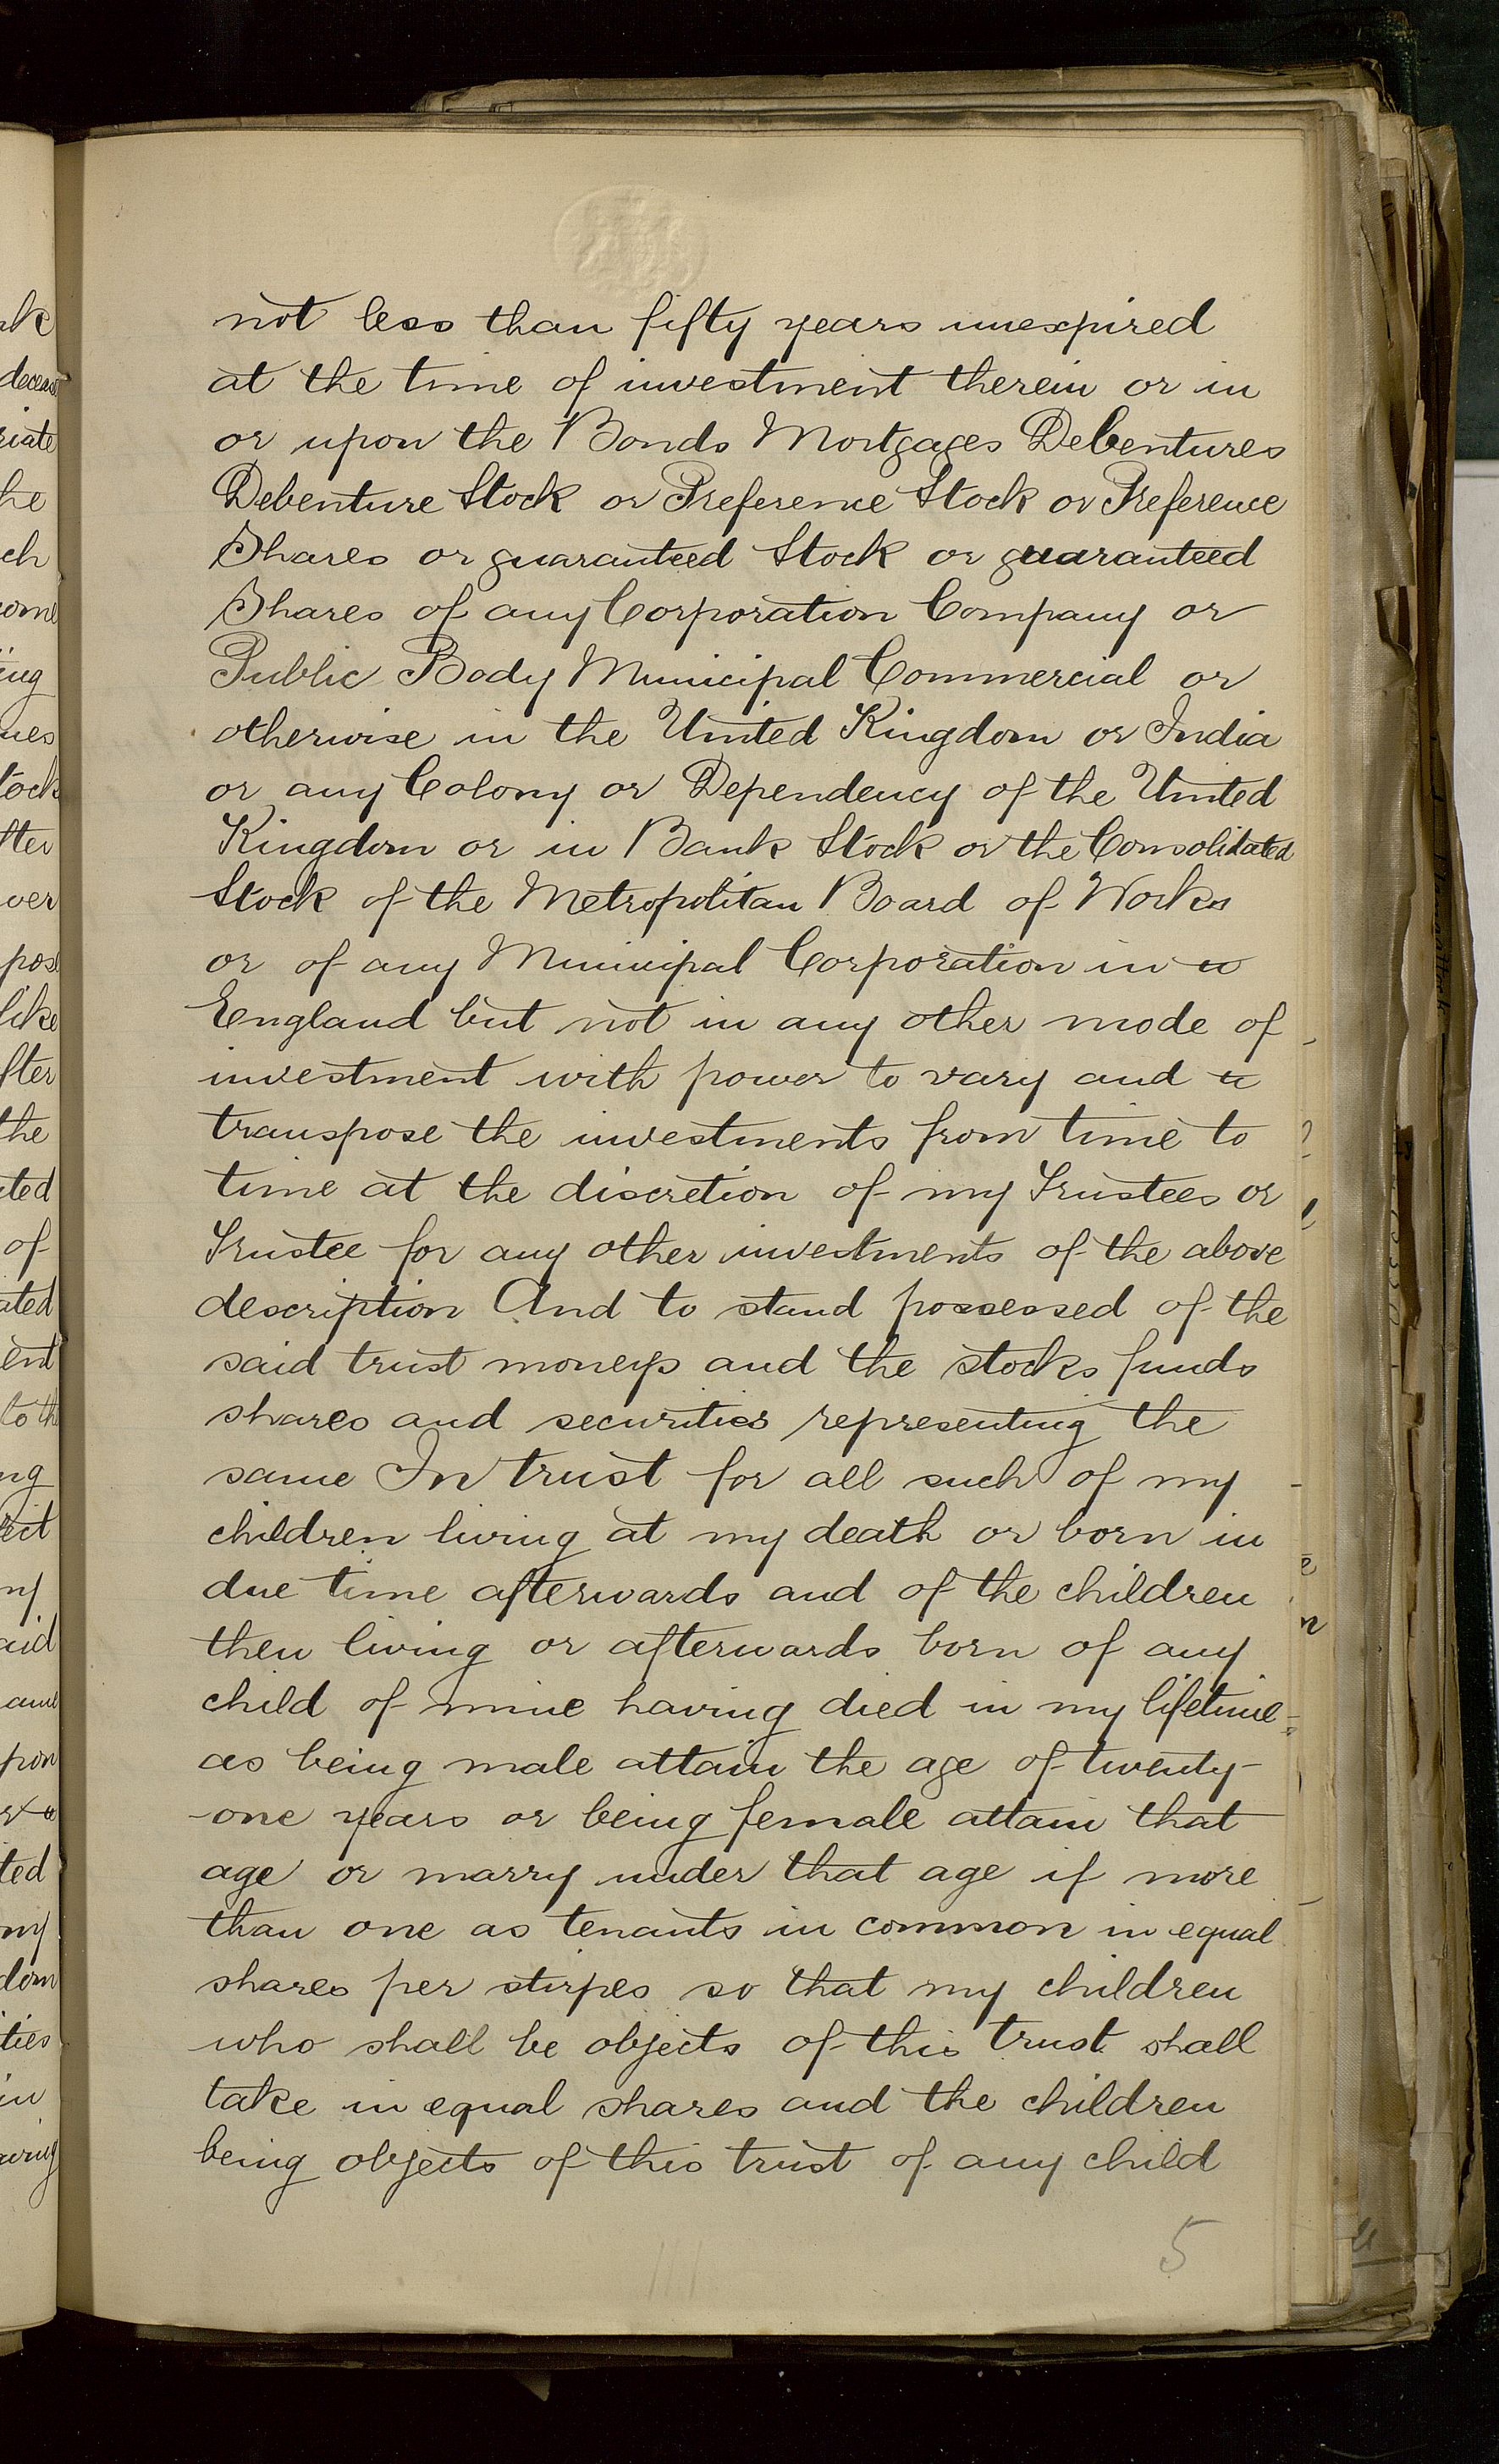 not less than fifty years unexpired
at the time of investment therein or in
or upon the Bonds Mortgages Debentures
Debenture Stock or Preference Stock or Preference
Shares or guaranteed Stock or guaranteed
Shares of any Corporation Company or
Public Body Municipal Commercial or
otherwise in the United Kingdom or India
or any Colony or Dependency of the United
Kingdom or in Bank Stock or the Consolidated
Stock of the Metropolitan Board of Works
or of any Municipal Corporation in
England but not in any other mode of
investment with power to vary and
transpose the investments from time to
time at the discretion of my Trustees or
Trustee for any other investments of the above
description And to stand possessed of the
said trust moneys and the stocks funds
shares and securities representing the
same In trust for all such of my
children living at my death or born in
due time afterwards and of the children
then living or afterwards born of any
child of mine having died in my lifetime
as being male attain the age of twenty-
-one years or being female attain that
age or marry under that age if more
than one as tenants in common in equal
shares per stirpes so that my children
who shall be objects of this trust shall
take in equal shares and the children
being objects of this trust of any child
5